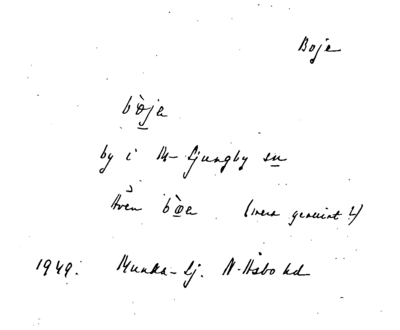 Boje
bò̱ja
by i M-Ljungby sn
Även bò̱a (mera genuint?)
1949. Munka-Lj. N. Åsbo hd